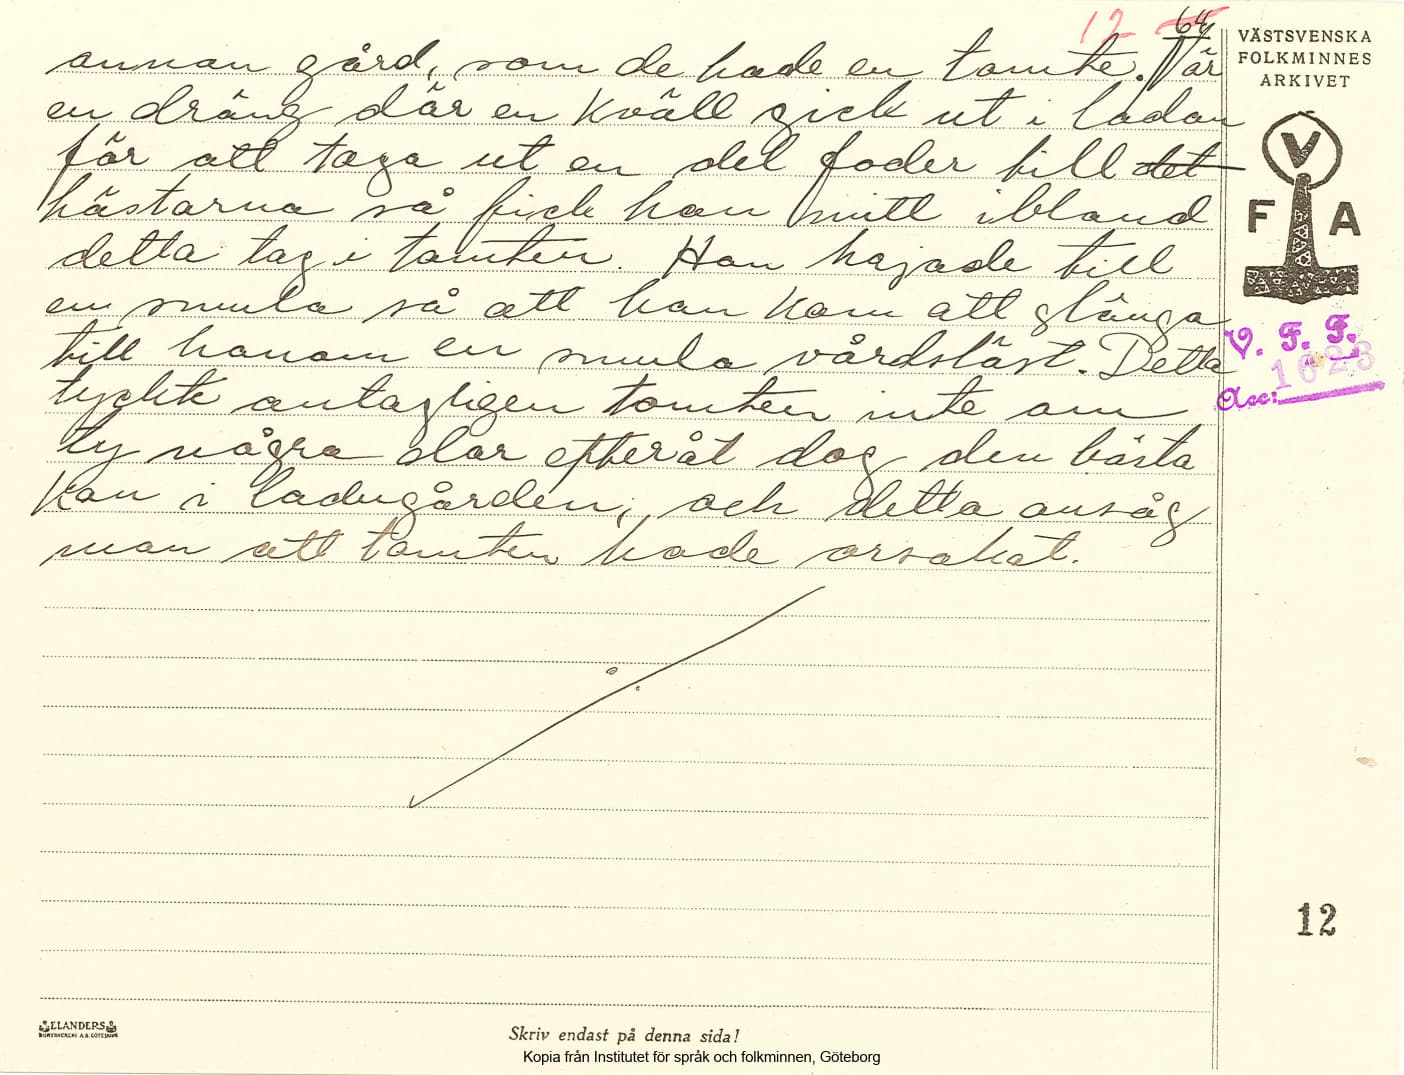 12 64
annan gård, som de hade en tomte. När
en dräng där en kväll gick ut i ladan
för att taga ut en del foder till det
hästarna så fick han mitt ibland
detta tag i tomten. Han hajade till
en smula så att han kom att slänga
till honom en smula vårdslöst. Detta
tyckte antagligen tomten inte om
ty några dar efteråt dog den bästa
kon i ladugården, och detta ansåg
man att tomten hade orsakat.
VÄSTSVENSKA
FOLKMINNES
ARKIVET
V
F A
V. F. F.
Acc: 1623
12
ELANDERS
Skriv endast på denna sida!
Kopia från Institutet för språk och folkminnen, Göteborg